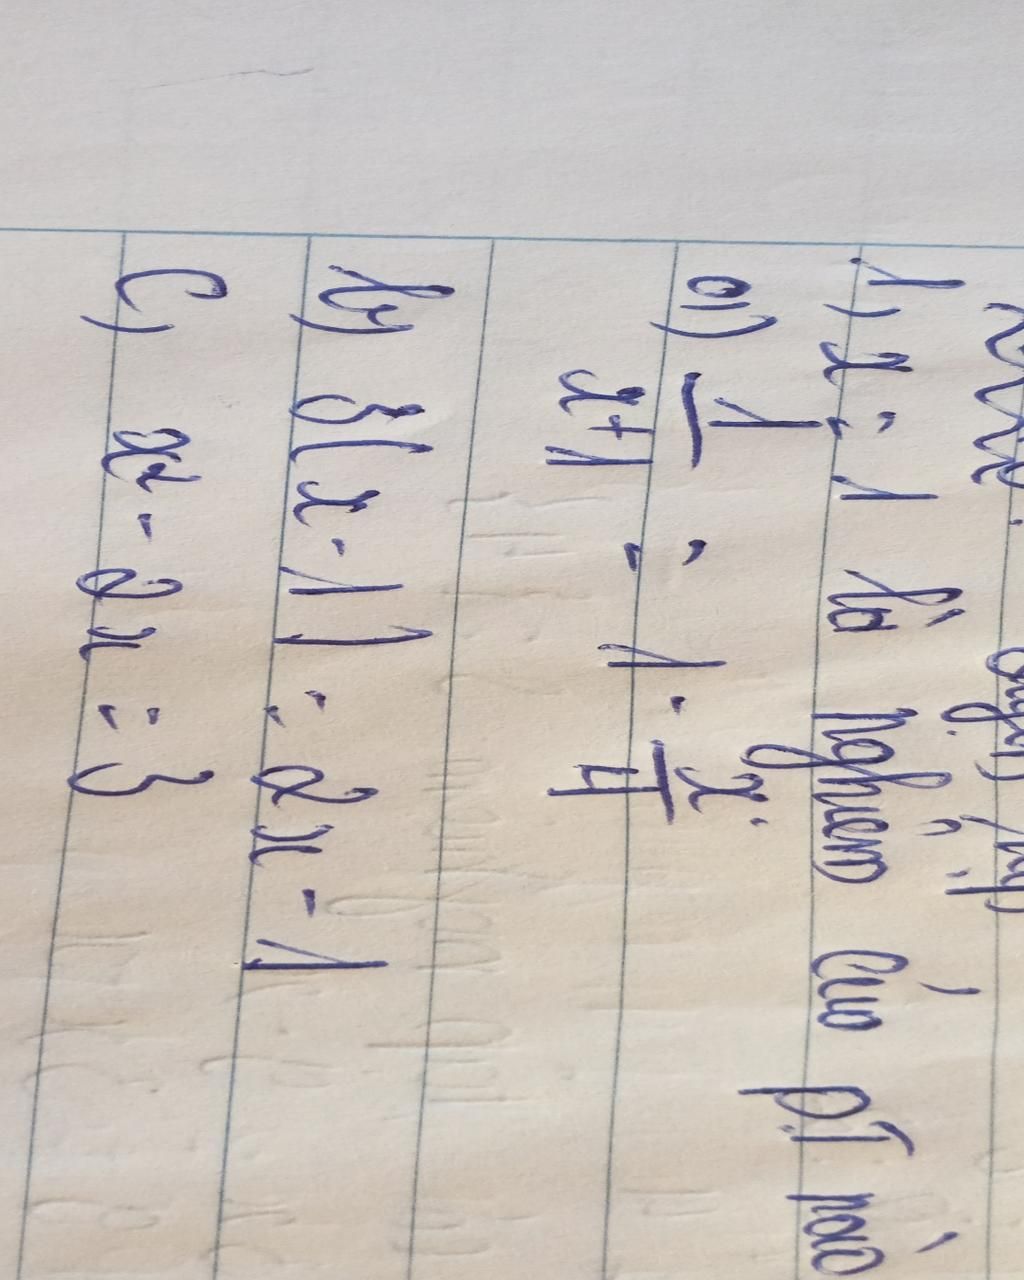 1) x = 1 là nghiệm của pT nào
a) 1/(x+1) = 1 - x/4
b) 3(x-1) = 2x - 1
c) x - 2x = 3